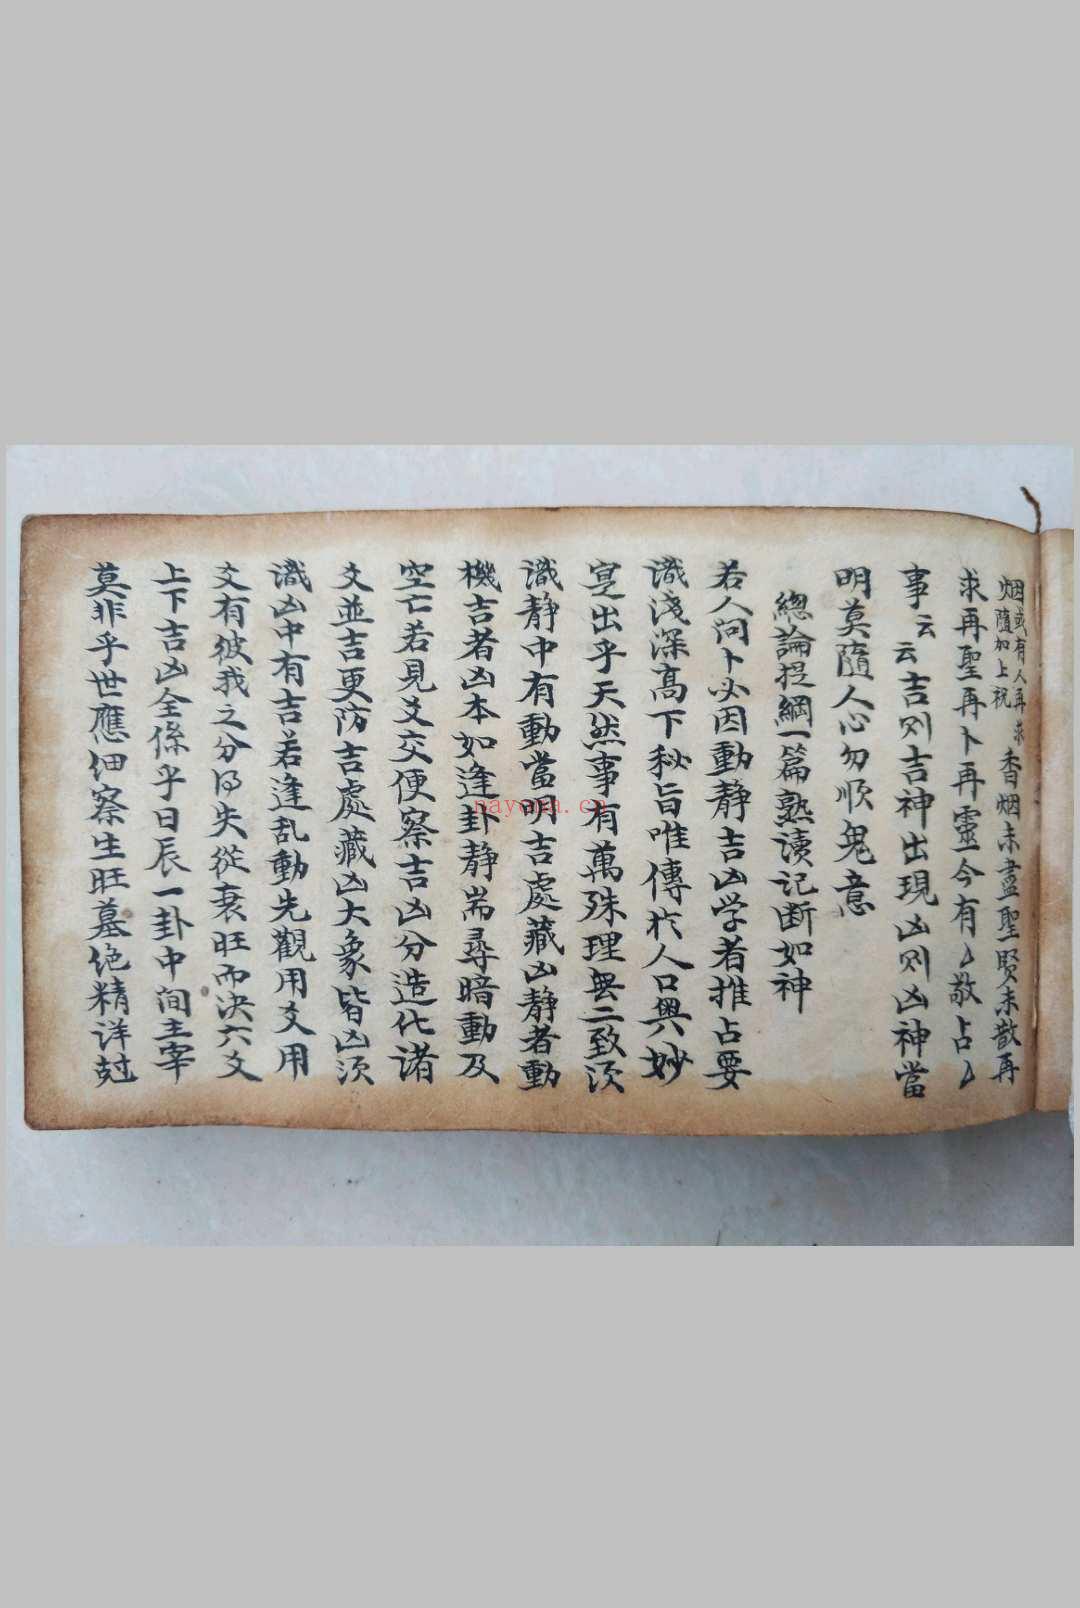 烟或有人再求
烟隨加上祝
香烟未盡聖賢未散再
求再聖再卜再靈今有厶敬占厶
事云云吉则吉神出現凶则凶神當
明莫隨人心勿順鬼意
總論提綱一篇熟读记断如神
若人问卜必因動静吉凶学者推占要
識淺深高下秘旨唯傳於人口奥妙
寔出乎天然事有萬殊理無二致须
識静中有動當明吉處藏凶静者動
機吉者凶本如逢卦静耑尋暗動及
空亡若見爻交便察吉凶分造化诸
爻並吉更防吉處藏凶大象皆凶须
識凶中有吉若逢乱動先觀用爻用
爻有彼我之分得失從衰旺而决六爻
上下吉凶全係乎日辰一卦中间主宰
莫非乎世應细察生旺墓绝精详尅
nayona.cn